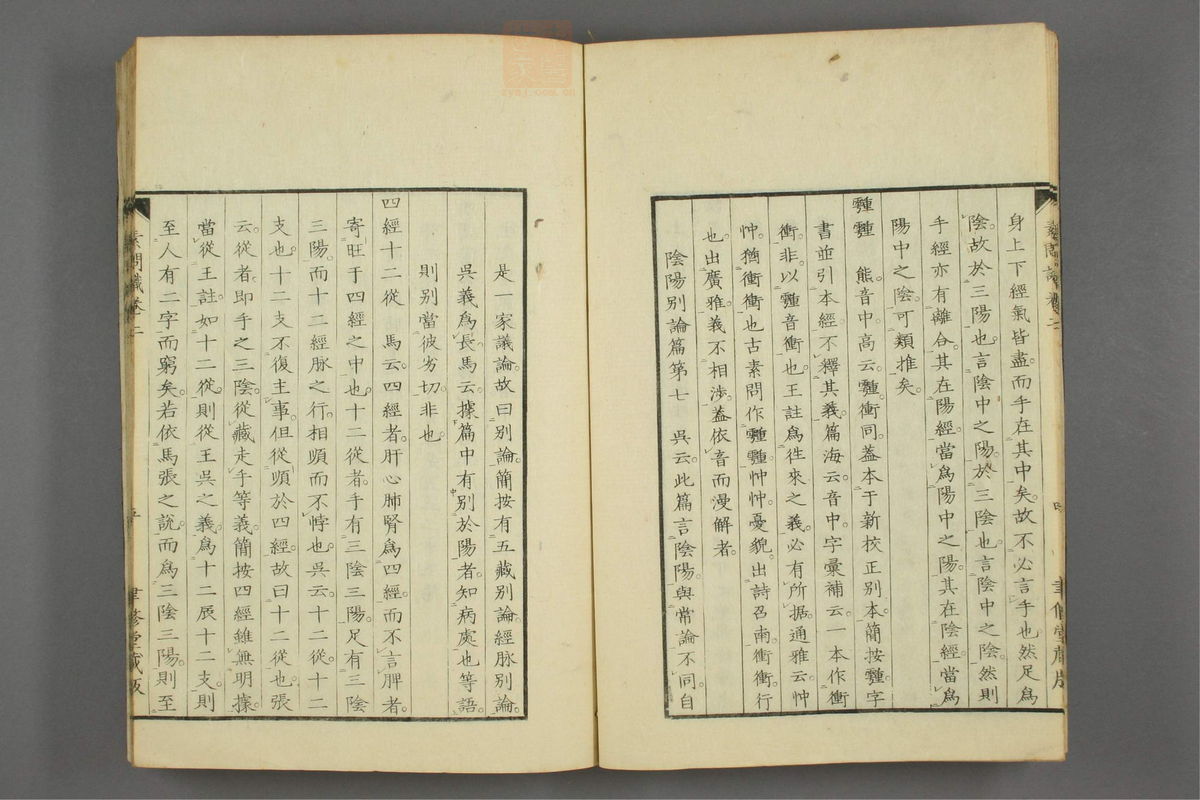 身上下經氣皆盡而手在其中矣故不必言手也然足爲
陰故於三陽也言陰中之陽於三陰也言陰中之陰然則
手經亦有離合其在陽經當爲陽中之陽其在陰經當爲
陽中之陰可類推矣
𩅞𩅞 熊音中高云𩅞衝同蓋本于新校正別本簡按𩅞字
書並引本經不釋其義篇海云音中字彙補云一本作衝
衝非以𩅞音衝也王註爲徃來之義必有所据通雅云忡
忡猶衝衝也古素問作𩅞𩅞忡忡憂貌出詩召南衝衝行
也出廣雅義不相涉蓋依音而漫解者
陰陽別論篇第七 吳云此篇言陰陽與常論不同自
素問識卷二
聿修堂藏版
是一家議論故曰別論簡按有五藏別論經脉別論
吳義爲長馬云據篇中有別於陽者知病處也等語
則別當彼劣切非也
四經十二從 馬云四經者肝心肺腎爲四經而不言脾者
寄旺于四經之中也十二從者手有三陰三陽足有三陰
三陽而十二經脉之行相順而不悖也吳云十二從十二
支也十二支不復主事但從順於四經故曰十二從也張
云從者即手之三陰從藏走手等義簡按四經雖無明據
當從王註如十二從則從王吳之義爲十二辰十二支則
至人有二字而窮矣若依馬張之說而爲三陰三陽則至
素問識卷二
聿修堂藏版